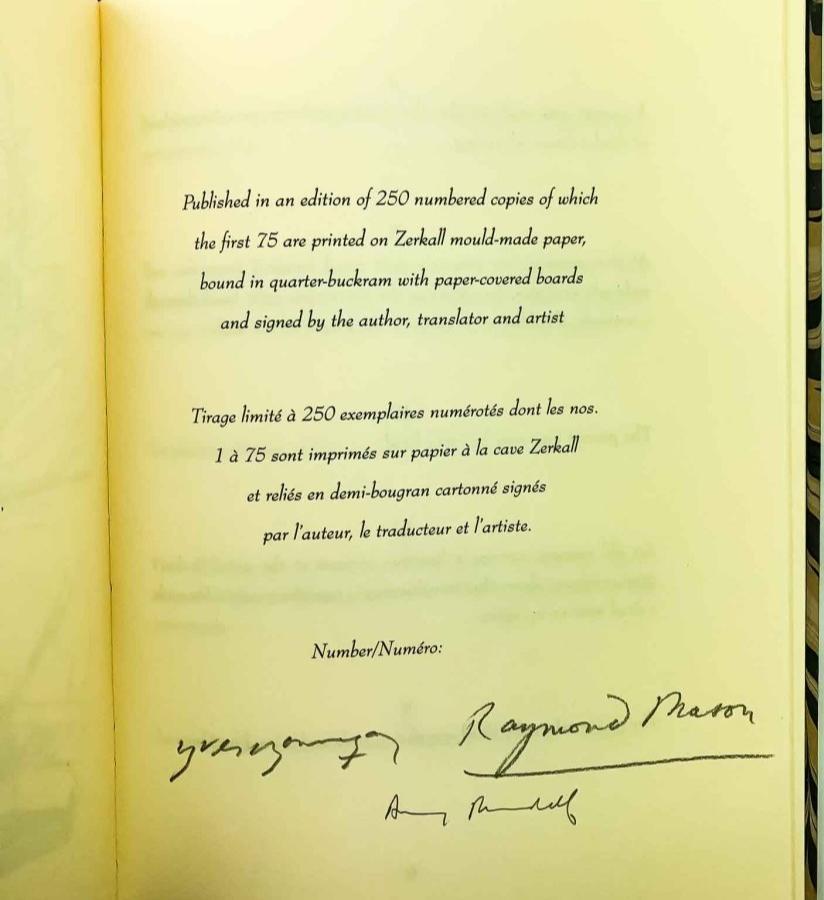 Published in an edition of 250 numbered copies of which
the first 75 are printed on Zerkall mould-made paper,
bound in quarter-buckram with paper-covered boards
and signed by the author, translator and artist
Tirage limité à 250 exemplaires numérotés dont les nos.
1 à 75 sont imprimés sur papier à la cave Zerkall
et reliés en demi-bougran cartonné signés
par l'auteur, le traducteur et l'artiste.
Number/Numéro:
Raymond Mason